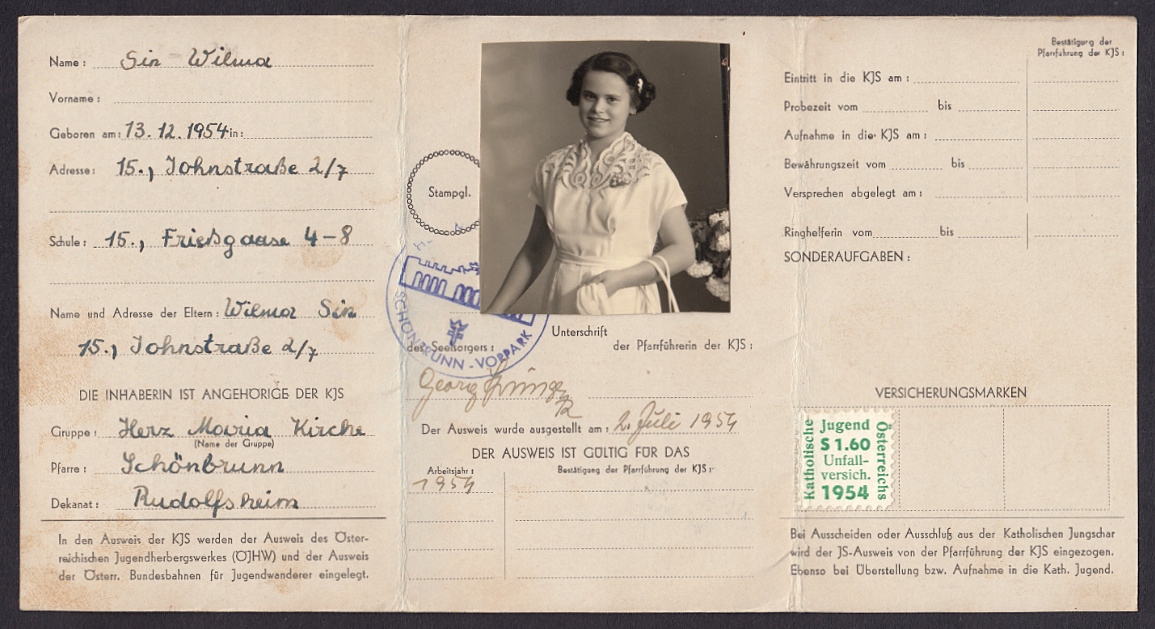 Name: Sin Wilma
Vorname:
Geboren am: 13.12.1954 in:
Adresse: 15., Johnstraße 2/7
Schule: 15., Friesgasse 4-8
Name und Adresse der Eltern: Wilma Sin
15., Johnstraße 2/7
DIE INHABERIN IST ANGEHÖRIGE DER KJS
Gruppe: Herz Maria Kirche
(Name der Gruppe)
Pfarre: Schönbrunn
Dekanat: Rudolfsheim
In den Ausweis der KJS werden der Ausweis des Öster-
reichischen Jugendherbergswerkes (ÖJHW) und der Ausweis
der Österr. Bundesbahnen für Jugendwanderer eingelegt.
Stampgl.
SCHÖNBRUNN - VORPARK
Unterschrift
des Seelsorgers: der Pfarrführerin der KJS:
Georg
Der Ausweis wurde ausgestellt am: 2. Juli 1954
DER AUSWEIS IST GÜLTIG FÜR DAS
Arbeitsjahr: Bestätigung der Pfarrführung der KJS:
1954
Bestätigung der
Pfarrführung der KJS:
Eintritt in die KJS am:
Probezeit vom bis
Aufnahme in die KJS am:
Bewährungszeit vom bis
Versprechen abgelegt am:
Ringhelferin vom bis
SONDERAUFGABEN:
VERSICHERUNGSMARKEN
Katholische
Jugend
Österreichs
S 1.60
Unfall-
versich.
1954
Bei Ausscheiden oder Ausschluß aus der Katholischen Jungschar
wird der JS-Ausweis von der Pfarrführung der KJS eingezogen.
Ebenso bei Überstellung bzw. Aufnahme in die Kath. Jugend.